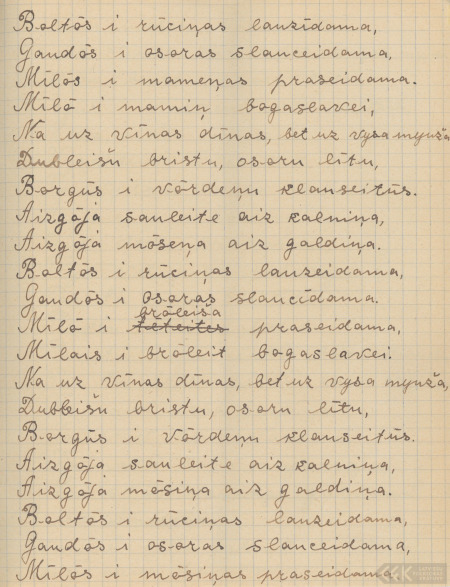 Boltōs i rūciņas lauzīdama,
Gaudōs i osoras slauceidama,
Mīlōs i mameņas praseidama.
Mīlō i mamiņ bogaslavei,
Na uz vīnas dīnas, bet uz vysa myuža
Dubleišu bristu, osoru lītu,
Borgūs i vōrdeņu klauseitūs.
Aizgōja sauleite aiz kalniņa,
Aizgōja mōseņa aiz galdiņa.
Boltōs i rūciņas lauzeidama,
Gaudōs i osoras slaucīdama.
Mīlō i brōleiša praseidama,
Mīlais i brōleit bogaslavei.
Na uz vīnas dīnas, bet uz vysa myuža,
Dubleišu bristu, osoru lītu,
Borgūs i vōrdeņu klauseitūs.
Aizgōja sauleite aiz kalniņa,
Aizgōja mōsiņa aiz galdiņa.
Boltōs i rūciņas lauzeidama,
Gaudōs i osoras slauceidama,
Mīlōs i mōsiņas praseidama